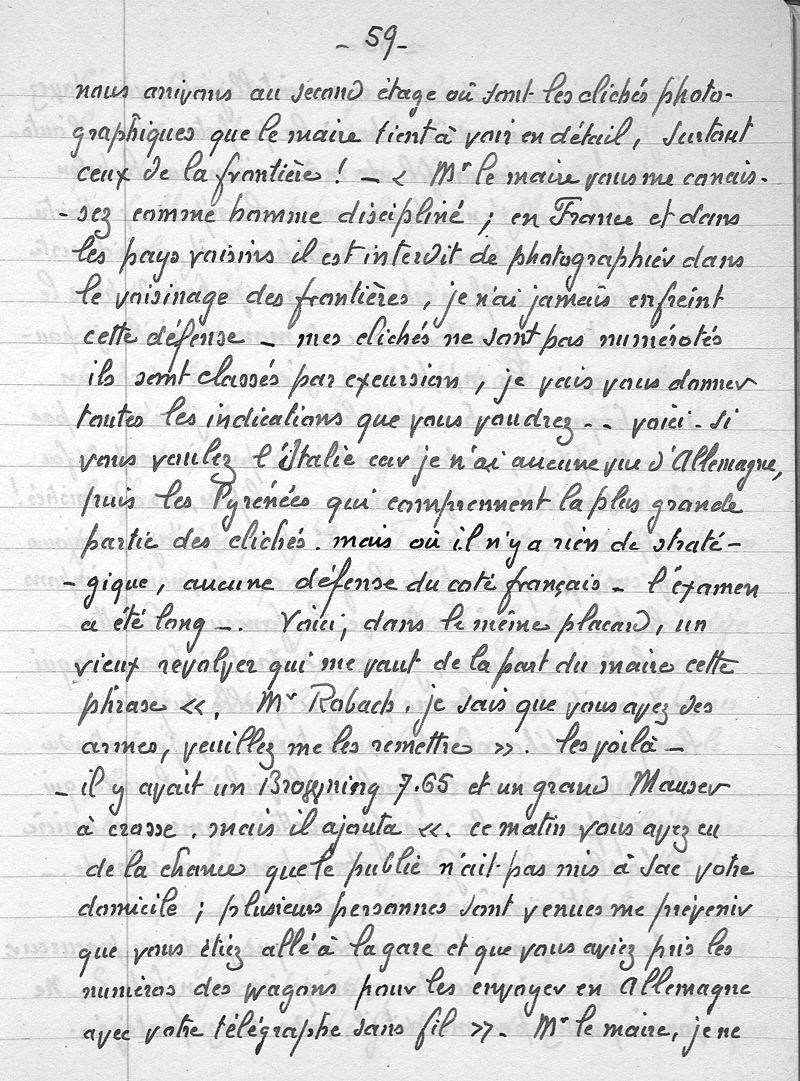 - 59 -
nous arivons au second étage où sont les clichés photo-
graphiques que le maire tient à voir en détail, surtout
ceux de la frontière ! - « Mr le maire vous me conais-
- sez comme homme discipliné ; en France et dans
les pays voisins il est interdit de photographier dans
le voisinage des frontières, je n'ai jamais enfreint
cette défense - mes clichés ne sont pas numérotés
ils sont classés par excursion, je vais vous donner
toutes les indications que vous voudrez - - voici - si
vous voulez l'Italie car je n'ai aucune vue d'Allemagne,
puis les Pyrénées qui comprennent la plus grande
partie des clichés. mais où il n'y a rien de straté-
- gique, aucune défense du coté français - l'éxamen
a été long -. Voici, dans le même placard, un
vieux revolver qui me vaut de la part du maire cette
phrase «. Mr Robach, je sais que vous avez des
armes, veuillez me les remettre ». les voilà -
- il y avait un Browning 7.65 et un grand Mauser
à crosse. mais il ajouta «. ce matin vous avez eu
de la chance que le public n'ait pas mis à sac votre
domicile ; plusieurs personnes sont venues me prévenir
que vous étiez allé à la gare et que vous aviez pris les
numéros des wagons pour les envoyer en Allemagne
avec votre télégraphe sans fil ». Mr le maire, je ne